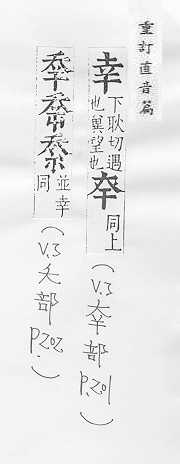 重訂直音篇
幸 下耿切遇也冀望也 㚔 同上 (V.3 㚔部 P.201)
並幸同 (V.3 夭部 P.202)